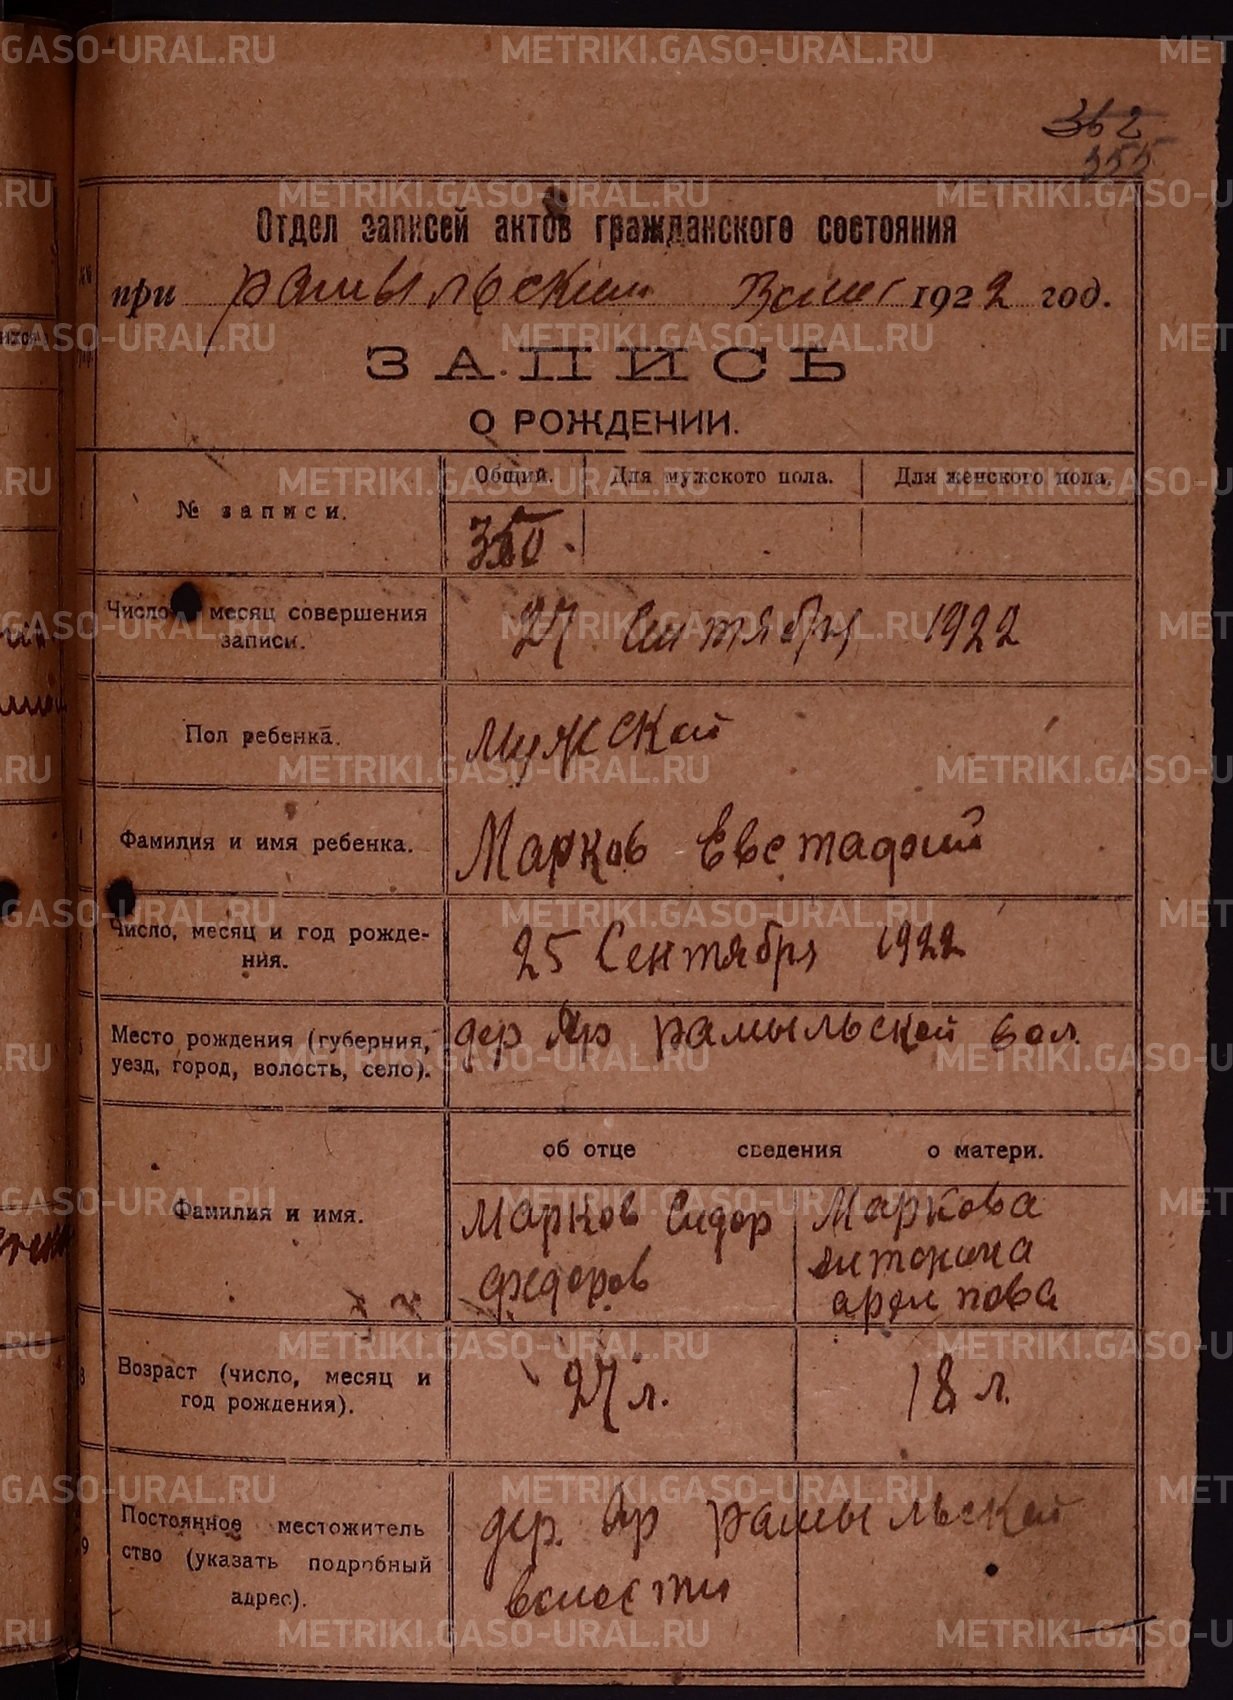 362
355
Отдел записей актов гражданского состояния
при рамыльским Волис 1922 год.
ЗАПИСЬ
О РОЖДЕНИИ.
№ записи.
Общий. Для мужского пола. Для женского пола.
350.
Число месяц совершения
записи.
27 Сентября 1922
Пол ребенка.
Мужской
Фамилия и имя ребенка.
Марков Евстафий
Число, месяц и год рожде-
ния.
25 Сентября 1922
Место рождения (губерния,
уезд, город, волость, село).
дер Яр рамыльской вол.
об отце сведения о матери.
Фамилия и имя.
Марков Сидор
Федоров
Маркова
антонина
Возраст (число, месяц и
год рождения).
27 л.
18 л.
Постоянное местожитель
ство (указать подробный
адрес).
дер. Яр рамыльской
волости
METRIKI.GASO-URAL.RU